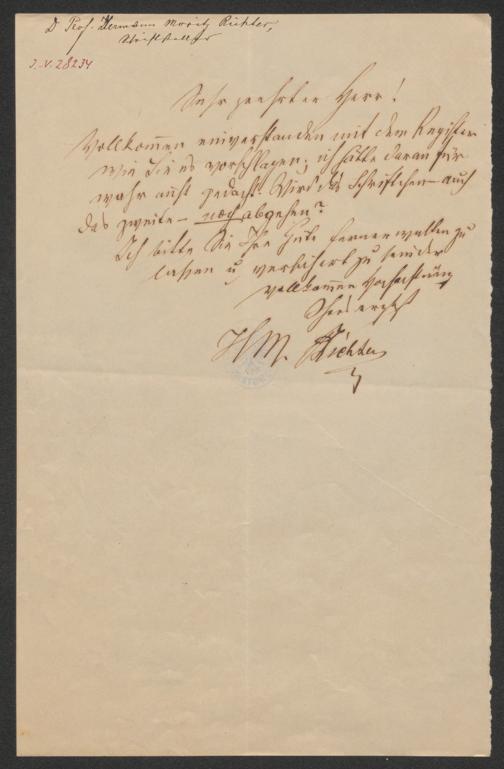 D Prof. Hermann Moritz Richter,
Schriftsteller
I.N. 28234
Sehr geehrter Herr!
Vollkom̅en einverstanden mit dem Register
wie Sie es vorschlagen; ich hätte daran für
wahr nicht gedacht. Wird das Schriftchen – auch
das zweite – noch abgehen?
Ich bitte Sie Ihre Güte ferner walten zu
lassen u versichert zu sein der
vollkom̅nen Hochachtung
Ihres ergebst
HM. Richter